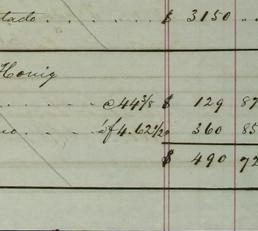 tado . . . . . . . $ 3150 ..
Honig
. . . . . . c 44 3/8 $ 129 87
no. . . . . . . 4.62 1/2 360 85
$ 490 72